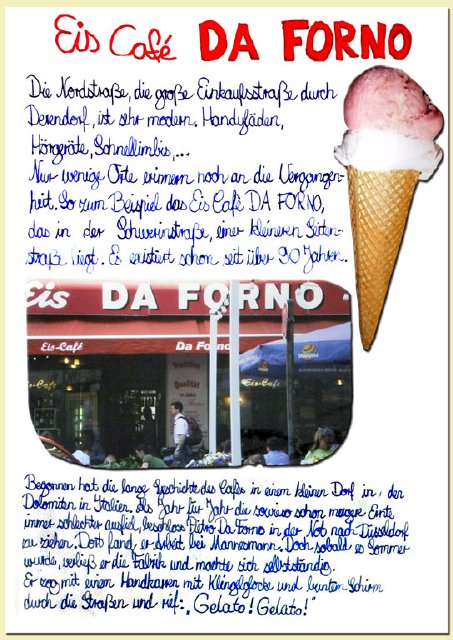 Eis Café DA FORNO
Die Nordstraße, die große Einkaufsstraße durch
Derendorf, ist sehr modern. Handyläden,
Hörgeräte, Schnellimbis,...
Nur wenige Orte erinnern noch an die Vergangen-
heit. So zum Beispiel das Eis Café DA FORNO,
das in der Schwerinstraße, einer kleineren Seiten-
straße liegt. Es existiert schon seit über 90 Jahren.
Eis DA FORNO
Eis-Café Da Forno
Tradition
Qualität
Eis-Café
Begonnen hat die lange Geschichte des Cafes in einem kleinen Dorf in den
Dolomiten in Italien. Als Jahr für Jahr die sowieso schon magere Ernte
immer schlechter ausfiel, beschloss Pietro Da Forno in der Not nach Düsseldorf
zu ziehen. Dort fand er Arbeit bei Mannesmann. Doch sobald es Sommer
wurde, verließ er die Fabrik und machte sich selbstständig.
Er zog mit einem Handkarren mit Klingelglocke und buntem Schirm
durch die Straßen und rief: „Gelato! Gelato!"